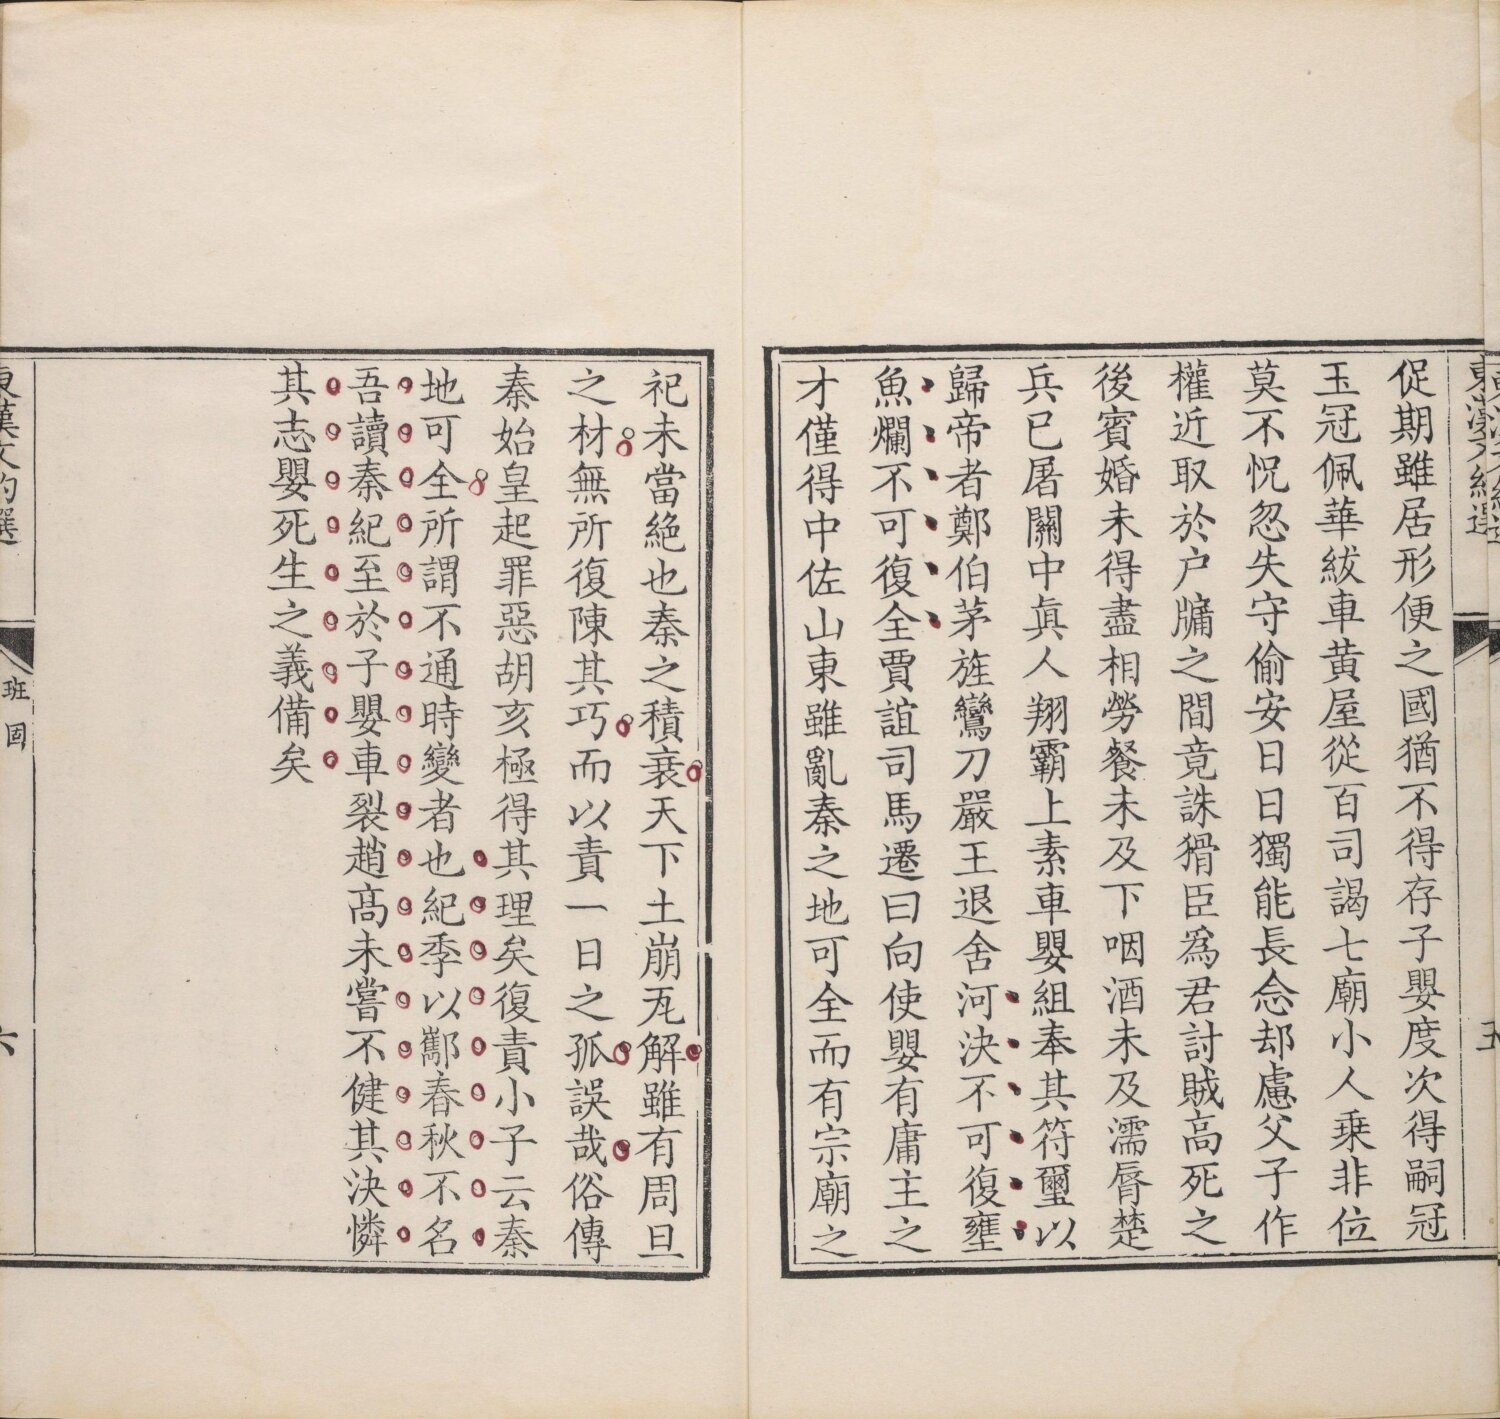 促期雖居形便之國猶不得存子嬰度次得嗣冠
玉冠佩華紱車黃屋從百司謁七廟小人乗非位
莫不怳忽失守偷安日日獨能長念却慮父子作
權近取於户牖之間竟誅猾臣為君討賊高死之
後賓婚未得盡相勞餐未及下咽酒未及濡脣楚
兵已屠關中眞人翔霸上素車嬰組奉其符璽以
歸帝者鄭伯茅旌鸞刀嚴王退舍河決不可復壅
魚爛不可復全賈誼司馬遷曰向使嬰有庸主之
才僅得中佐山東雖亂秦之地可全而有宗廟之
祀未當絶也秦之積衰天下土崩瓦解雖有周旦
之材無所復陳其巧而以責一日之孤誤哉俗傳
秦始皇起罪惡胡亥極得其理矣復責小子云秦
地可全所謂不通時變者也紀季以酅春秋不名
吾讀秦紀至於子嬰車裂趙髙未嘗不健其決憐
其志嬰死生之義備矣
東漢文約選
班固
六